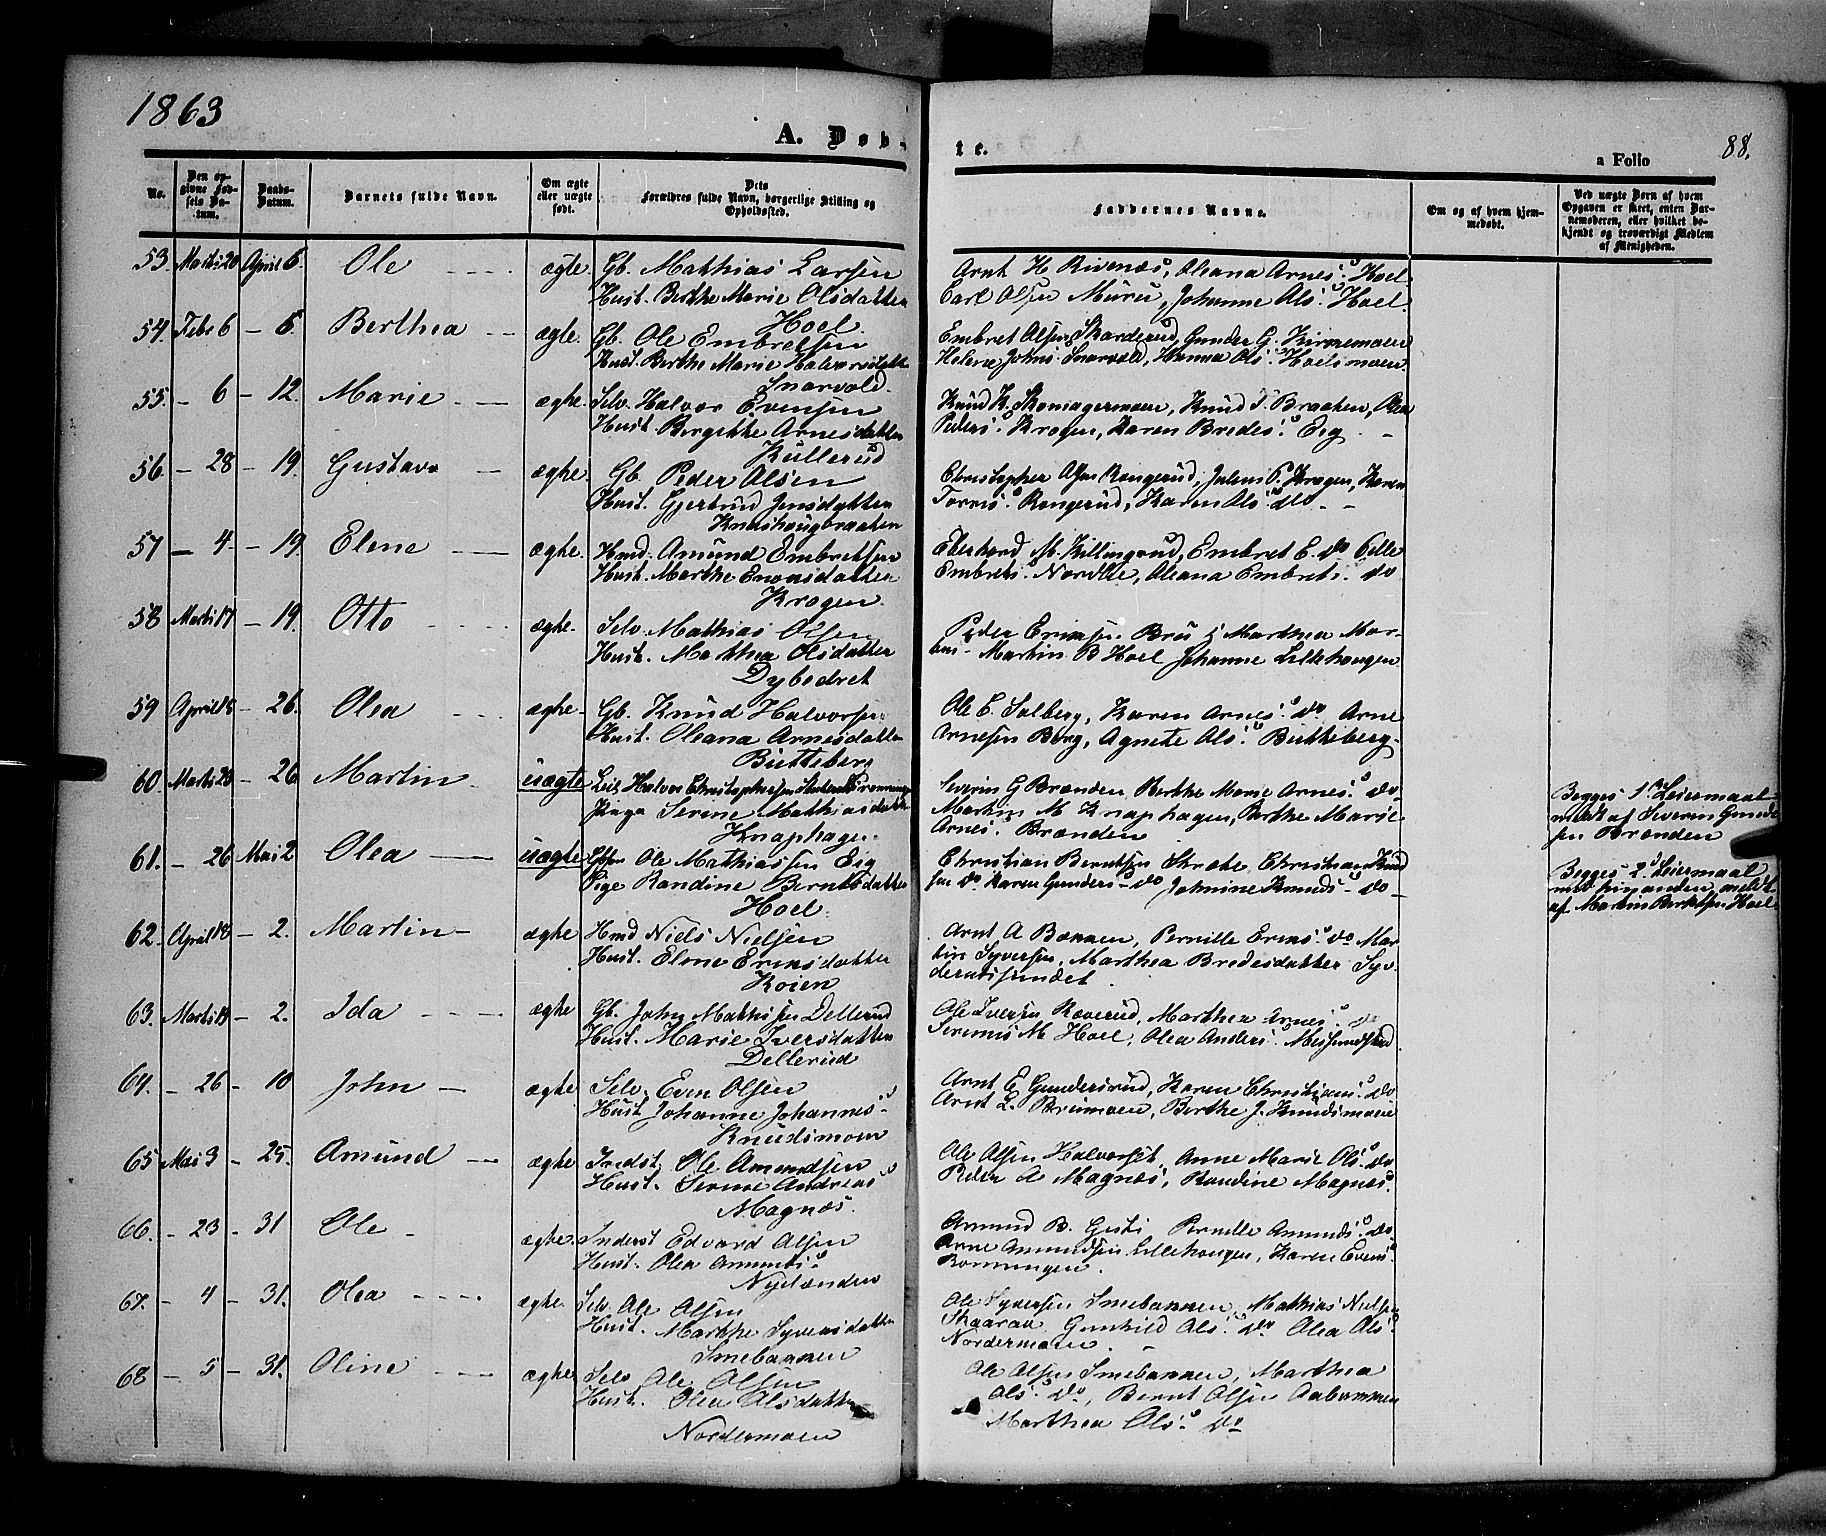 1863
A. Døb-
te.
a Folio
88.
No.
Den opgivne Fødsels Datum.
Daabs-Datum.
Barnets fulde Navn.
Om ægte eller uægte født.
Dets Forældres fulde Navn, borgerlige Stilling og Opholdssted.
Faddernes Navne.
Om og af hvem hjemmedøbt.
Ved uægte Børn af hvem Opgaven er skeet, enten Barnemoderen, eller hvilket bekjendt og troværdigt Medlem af Menigheden.
53. Marts 20 April 6. Ole ægte. Gb. Mathias Larsen
Hust. Berthe Marie Olsdatter
Hoel.
Arnt H Rivenæs, Oleana Arnes. Hoel
Carl Olsen Muru, Johanne Ols. Hoel.
54. Febr 6 - 6. Berthea ægte. Gb. Ole Embretsen
Hust. Berthe Marie Halvorsdatter
Snarvold.
Embret Olsen Skarderud, Gunder G. Kirkemoen
Helene Johns. Snarvold, Hanna Ols. Hoelsmoen.
55. - 6 - 12. Marie ægte. Selv. Halvor Evensen
Hust. Bergitte Arnesdatter
Kullerud
Knud K. Skomagermoen, Knud T. Braaten,
Peders. Krogen, Karen Bredes. Eig
56. - 28 - 19. Gustava ægte. Gb. Peder Olsen
Hust. Gjertrud Jensdatter
Knashougbraaten
Christopher Olsen Rengerud, Julius P. Krogen, Karen
Torris. Rengerud, Karen Ols. do
57 - 4. - 19. Elene ægte. Hmd. Amund Embretsen
Hust. Marthe Evensdatter
Krogen.
Eberhard M. Killingrud, Embret E. do Pelle
Embrets. Nordlie, Oleana Embrets. do
58 Marts 17 - 19. Otto ægte. Selv. Mathias Olsen
Hust. Marthea Olsdatter
Dybedret
Peder Eriksen Bru, Marthea
Martin B Hoel Johanne Lillehaugen
59 April 18 - 26. Olea ægte. Gb. Knud Halvorsen
Hust. Oleana Arnesdatter
Butteberg
Ole E. Solberg, Karen Arnes. do Arne
Arnesen Berg, Agnete Ols. Butteberg.
60. Marts 23 - 26 Martin uægte Halvor Christophersen
Serine Mathiasdatter
Knaphagen.
Severin G Brænden, Berthe Marie Arnes. do
Martin M Knaphagen, Berthe Marie
Arnes. Brænden
Begges 1ste Leiermaal
meldt af Severin Gunder-
sen Brænden
61. - 26 Mai 2 Olea uægte Ole Mathiassen Eig
Pige Randine Berntsdatter
Hoel.
Christian Berntsen, Christian Knud
sen do Karen Gunders. do Johnine Knuds. do
Begges 2. Leiermaal
med hinanden, meldt
af Martin Berntsen Hoel
62. April 18 - 2. Martin ægte Hmd Niels Nielsen
Hust. Elene Eriksdatter
Koien
Arnt A Bakken, Pernille Eriks. do Mar
tin Syversen, Marthea Bredesdatter Syv-
derudsundet.
63. Marts 19 - 2. Ida ægte Gb. John Mathisen Dellerud
Hust. Marie Iversdatter
Dellerud
Ole Iversen Røverud, Marthea Arnes. do
Jeremis M. Hoel, Olea Anders.
64. - 26 - 10 John ægte Selv. Even Olsen
Hust Johanne Johannes-
Knudsmoen
Arnt E Gundersrud, Karen Christians. do
Arnt L. Breimoen, Berthe J. Knudsmoen
65 Mai 3 - 25. Amund ægte Indst. Ole Amundsen
Hust. Serine Andreas
Magnæs.
Ole Olsen Halvorset, Anne Marie Ols. do
Peder A Magnæs, Randine Magnæs.
66. - 23 - 31 Ole ægte. Inderst Edvard Olsen
Hust. Olea Amunds.
Nylænden
Amund B. Pernille Amunds. do
Arne Amundsen Lillehaugen, Karen Evens.
Rønningen.
67. - 4 - 31. Olea ægte. Selv. Ole Olsen
Hust. Marthe Syversdatter
Smebakken
Ole Syversen Smebakken, Mathias Nielsen
Skaarau Gunhild Ols. do Olea Ols.
Nordermoen.
68 - 5 - 31. Oline ægte Selv Ole Olsen
Hust. Olea Olsdatter
Nordermoen
Ole Olsen Smebakken, Marthea
Ols. do, Bernt Olsen Aabakken
Marthea Ols. do